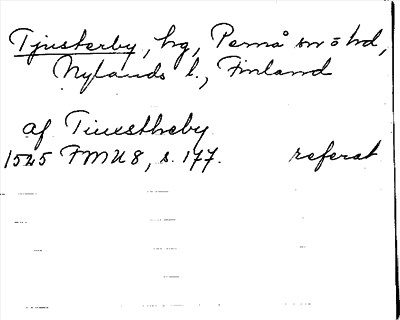 Tjusterby, hg, Pernå sn o hd,
Nylands l., Finland
af Tiuestheby
1525 FMU 8, s. 177. referat